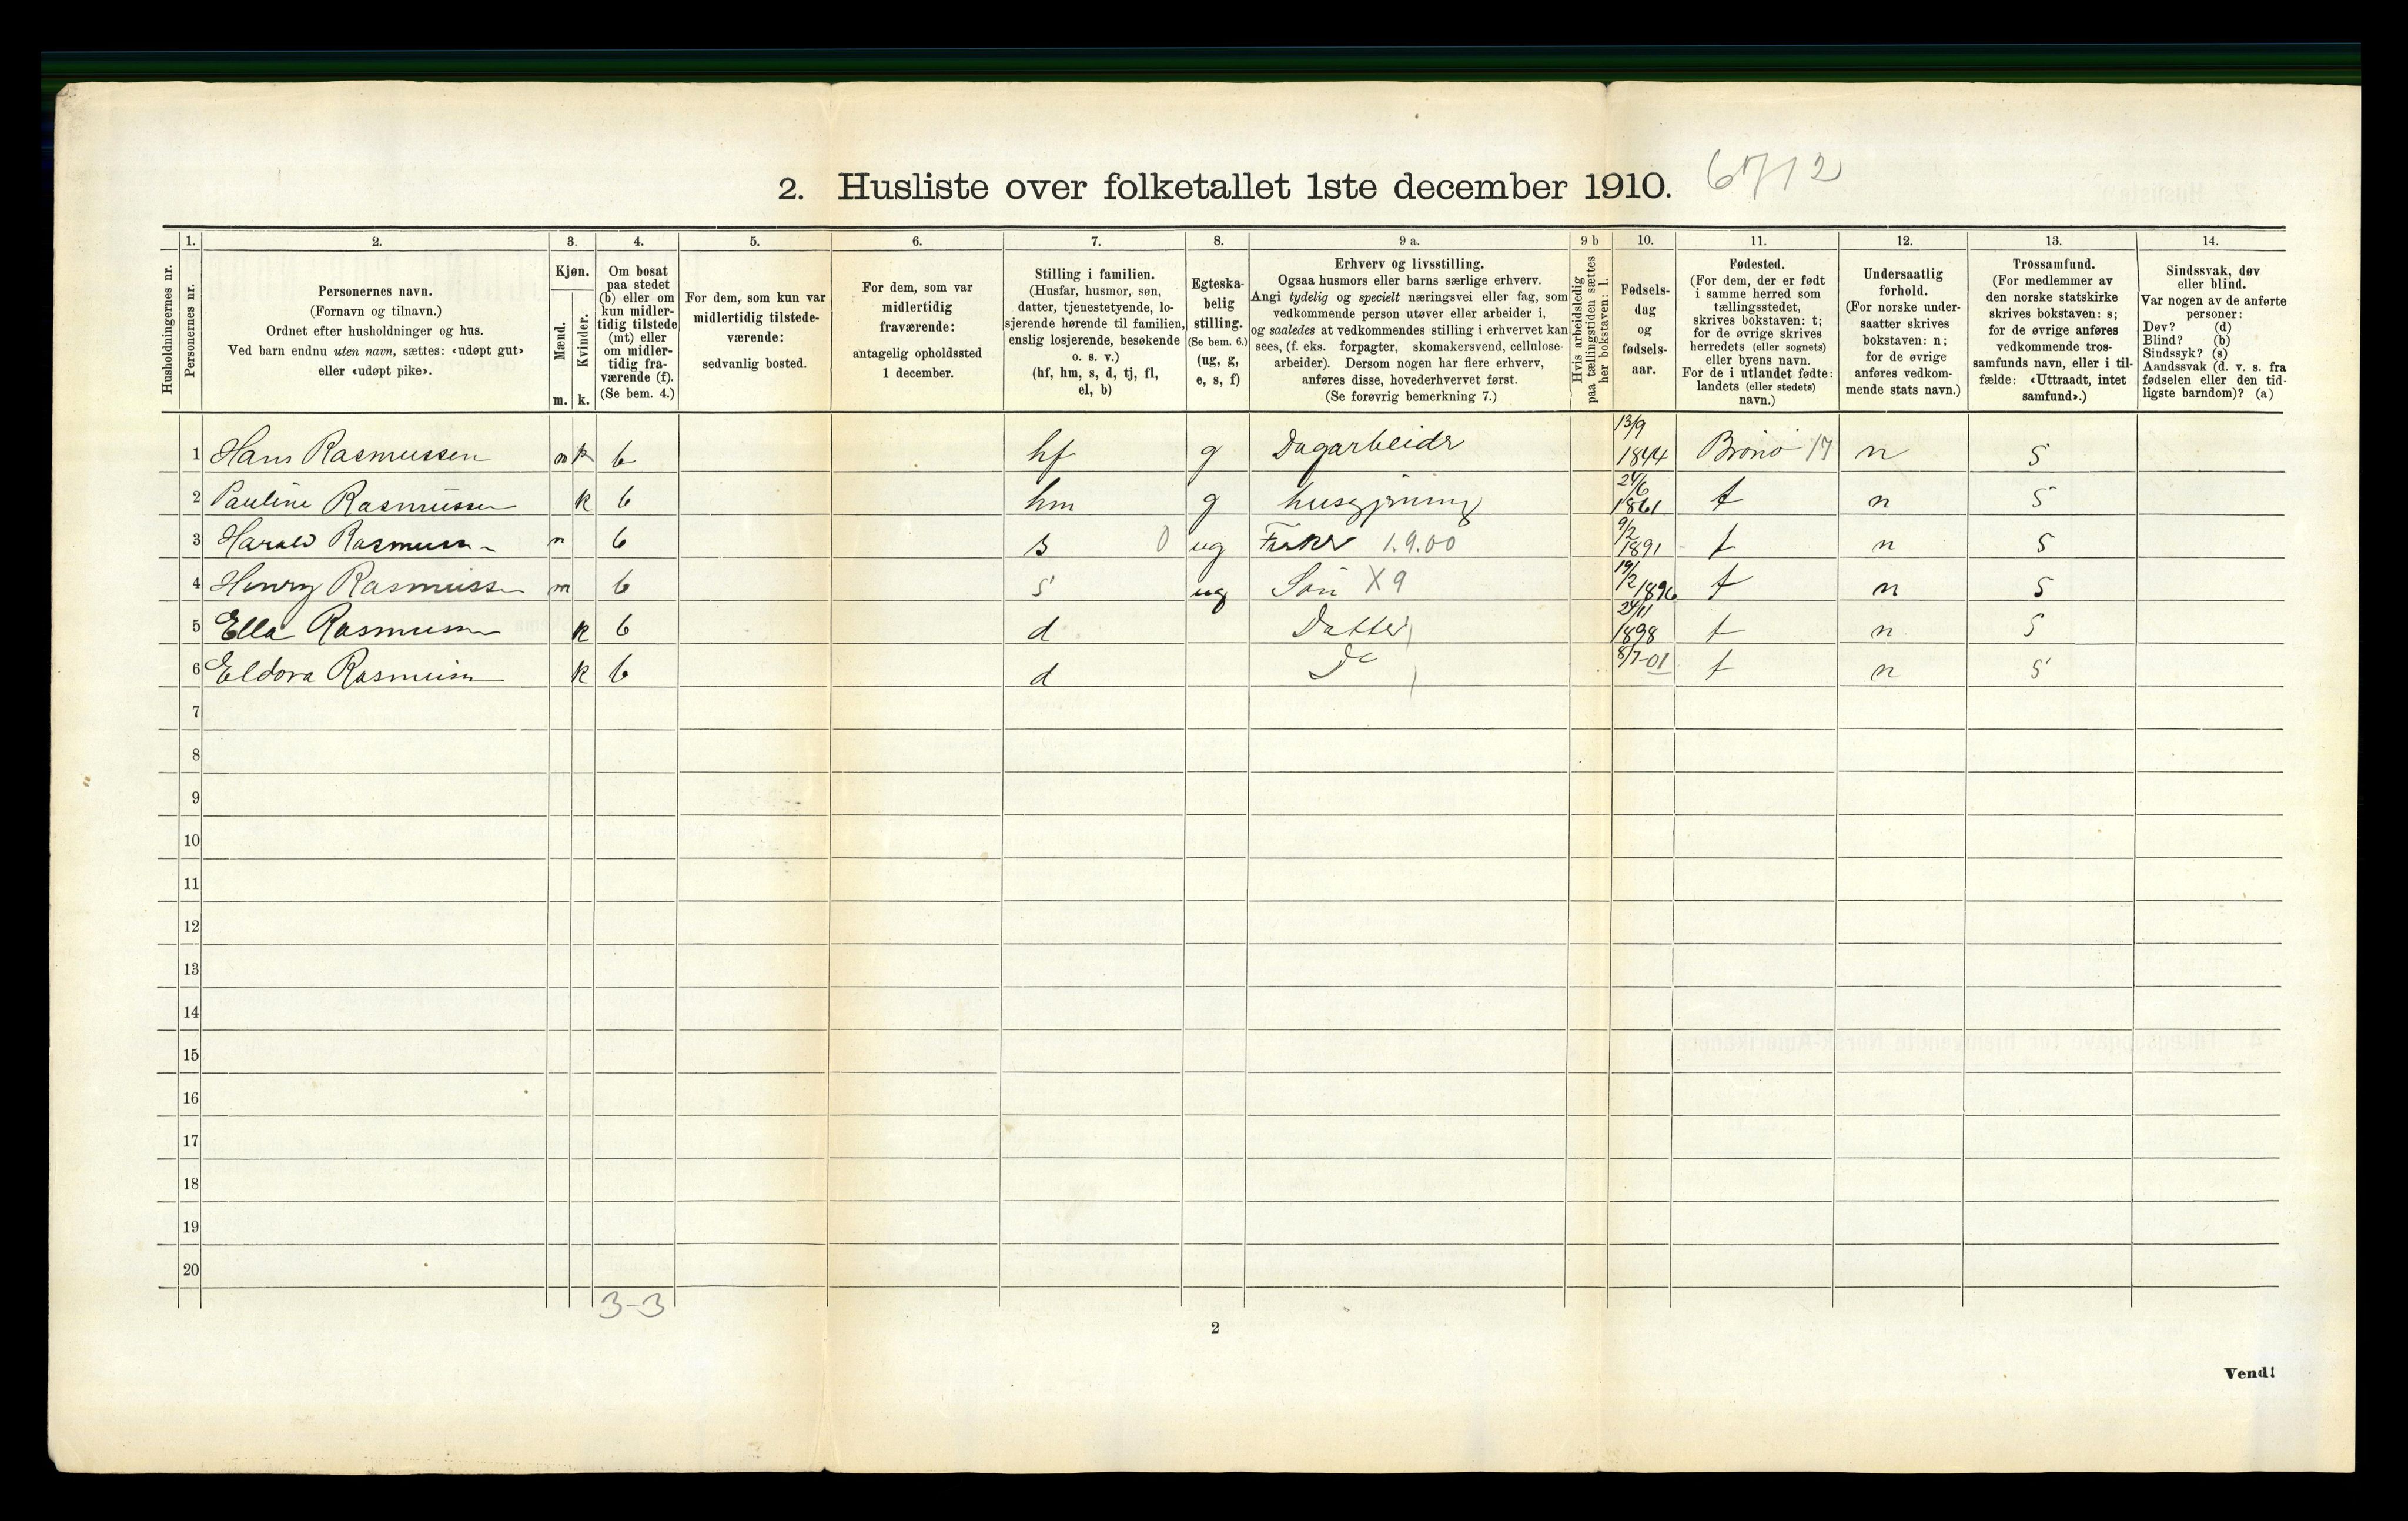 2. Husliste over folketallet 1ste december 1910. 6712
Husholdningernes nr.
1.
Personernes nr.
2.
Personernes navn.
(Fornavn og tilnavn.)
Ordnet efter husholdninger og hus.
Ved barn endnu uten navn, sættes: «udøpt gut»
eller «udøpt pike».
3.
Kjøn.
Mænd.
Kvinder.
m. k.
4.
Om bosat
paa stedet
(b) eller om
kun midler-
tidig tilstede
(mt) eller
om midler-
tidig fra-
værende (f).
(Se bem. 4.)
5.
For dem, som kun var
midlertidig tilstede-
værende:
sedvanlig bosted.
6.
For dem, som var
midlertidig
fraværende:
antagelig opholdssted
1 december.
7.
Stilling i familien.
(Husfar, husmor, søn,
datter, tjenestetyende, lo-
sjerende hørende til familien,
enslig losjerende, besøkende
o. s. v.)
(hf, hm, s, d, tj, fl,
el, b)
8.
Egteska-
belig
stilling.
(Se bem. 6.)
(ug, g,
e, s, f)
9 a.
Erhverv og livsstilling.
Ogsaa husmors eller barns særlige erhverv.
Angi tydelig og specielt næringsvei eller fag, som
vedkommende person utøver eller arbeider i,
og saaledes at vedkommendes stilling i erhvervet kan
sees, (f. eks. forpagter, skomakersvend, cellulose-
arbeider). Dersom nogen har flere erhverv,
anføres disse, hovederhvervet først.
(Se forøvrig bemerkning 7.)
9 b
Hvis arbeidsledig
paa tællingstiden sættes
her bokstaven: l.
10.
Fødsels-
dag
og
fødsels-
aar.
11.
Fødested.
(For dem, der er født
i samme herred som
tællingsstedet,
skrives bokstaven: t;
for de øvrige skrives
herredets (eller sognets)
eller byens navn.
For de i utlandet fødte:
landets (eller stedets)
navn.)
12.
Undersaatlig
forhold.
(For norske under-
saatter skrives
bokstaven: n;
for de øvrige
anføres vedkom-
mende stats navn.)
13.
Trossamfund.
(For medlemmer av
den norske statskirke
skrives bokstaven: s;
for de øvrige anføres
vedkommende tros-
samfunds navn, eller i til-
fælde: «Uttraadt, intet
samfund».)
14.
Sindssvak, døv
eller blind.
Var nogen av de anførte
personer:
Døv? (d)
Blind? (b)
Sindssyk? (s)
Aandssvak (d. v. s. fra
fødselen eller den tid-
ligste barndom)? (a)
1 Hans Rasmussen m b hf g Dagarbeidr 13/9 1844 Brønø 17 n s
2 Pauline Rasmussen k b hm g husgjerning 24/6 1861 t n s
3 Harald Rasmussen m b s 0 ug Fisker 1.9.00 9/2 1891 t n s
4 Henry Rasmussen m b s ug Søn X9 19/2 1896 t n s
5 Ella Rasmussen k b d Datter 24/11 1898 t n s
6 Eldora Rasmussen k b d Do 8/7-01 t n s
7
8
9
10
11
12
13
14
15
16
17
18
19
20
3-3
2
Vend!